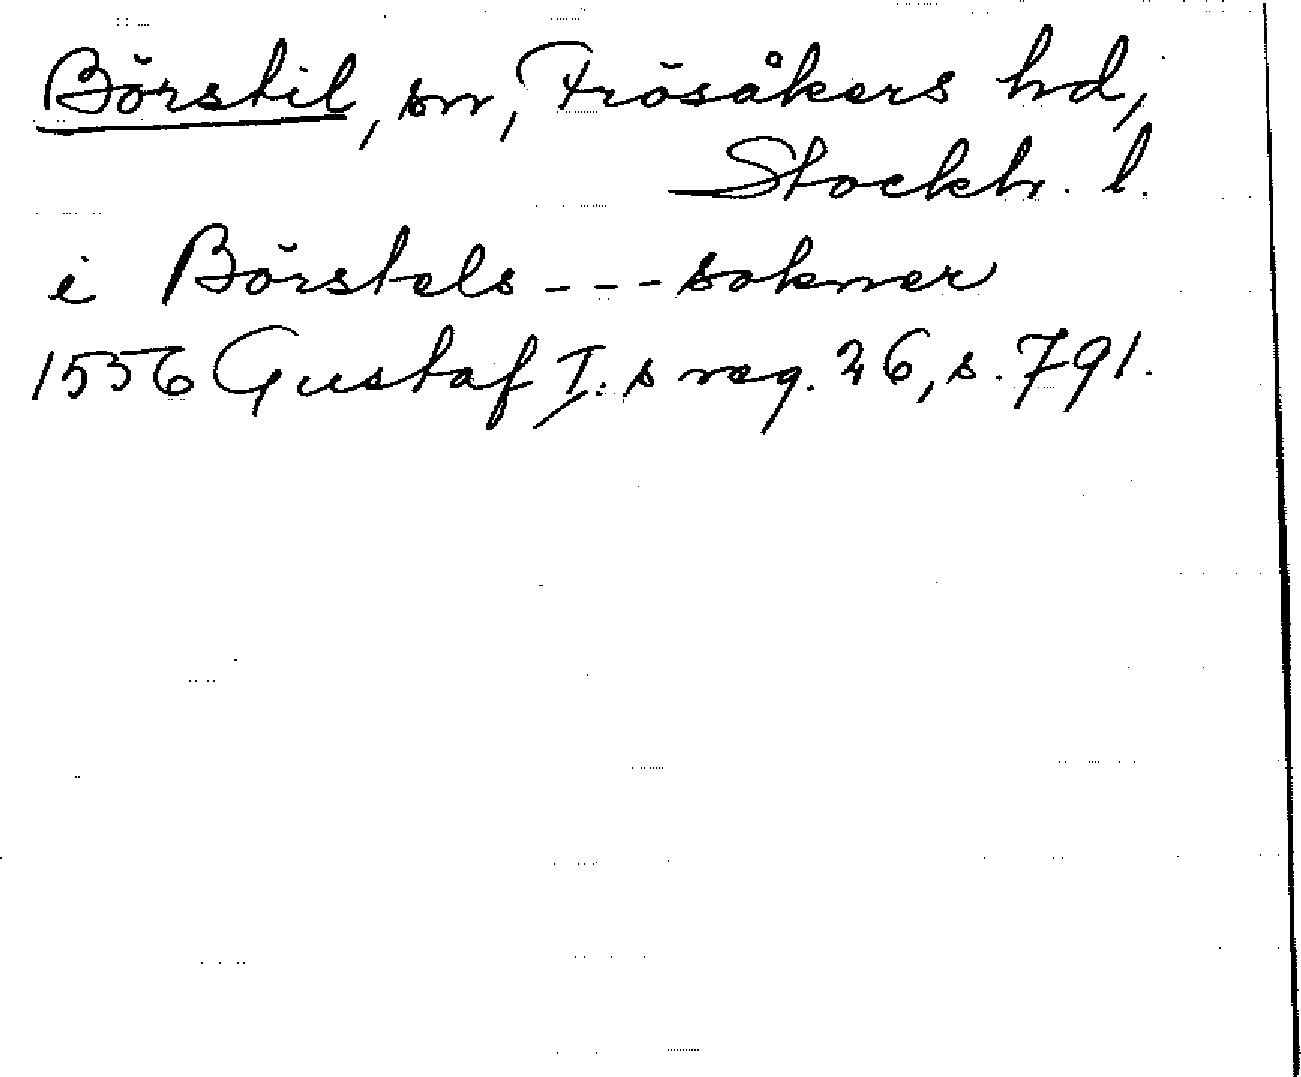 Börstil, sn, Frösåkers hd,
Stockh. l.
i Börstels - - - sokner
1556 Gustaf I:s reg. 26, s. 791.